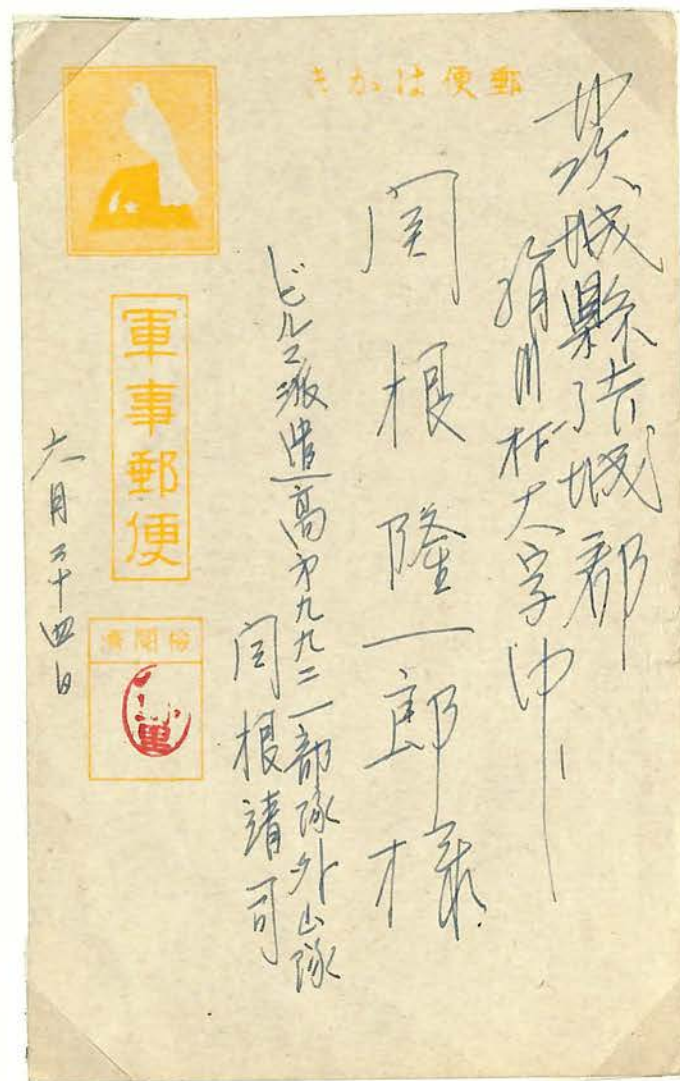 郵便はがき
茨城縣結城郡
絹川村大字中
関根隆一郎様
ビルマ派遣高第九九二一部隊外山隊
関根靖司
軍事郵便
検閲済
六月二十四日